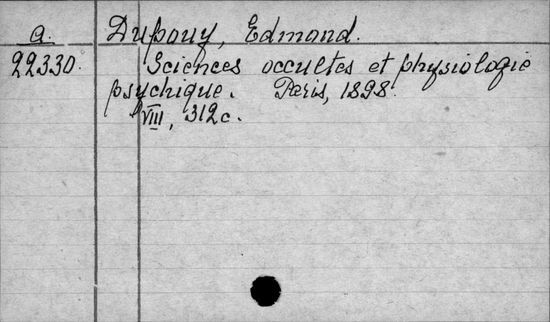 a. Dupouy, Edmond.
22330. Sciences occultes et physiologie
psychique. Paris, 1898.
VIII, 312c.